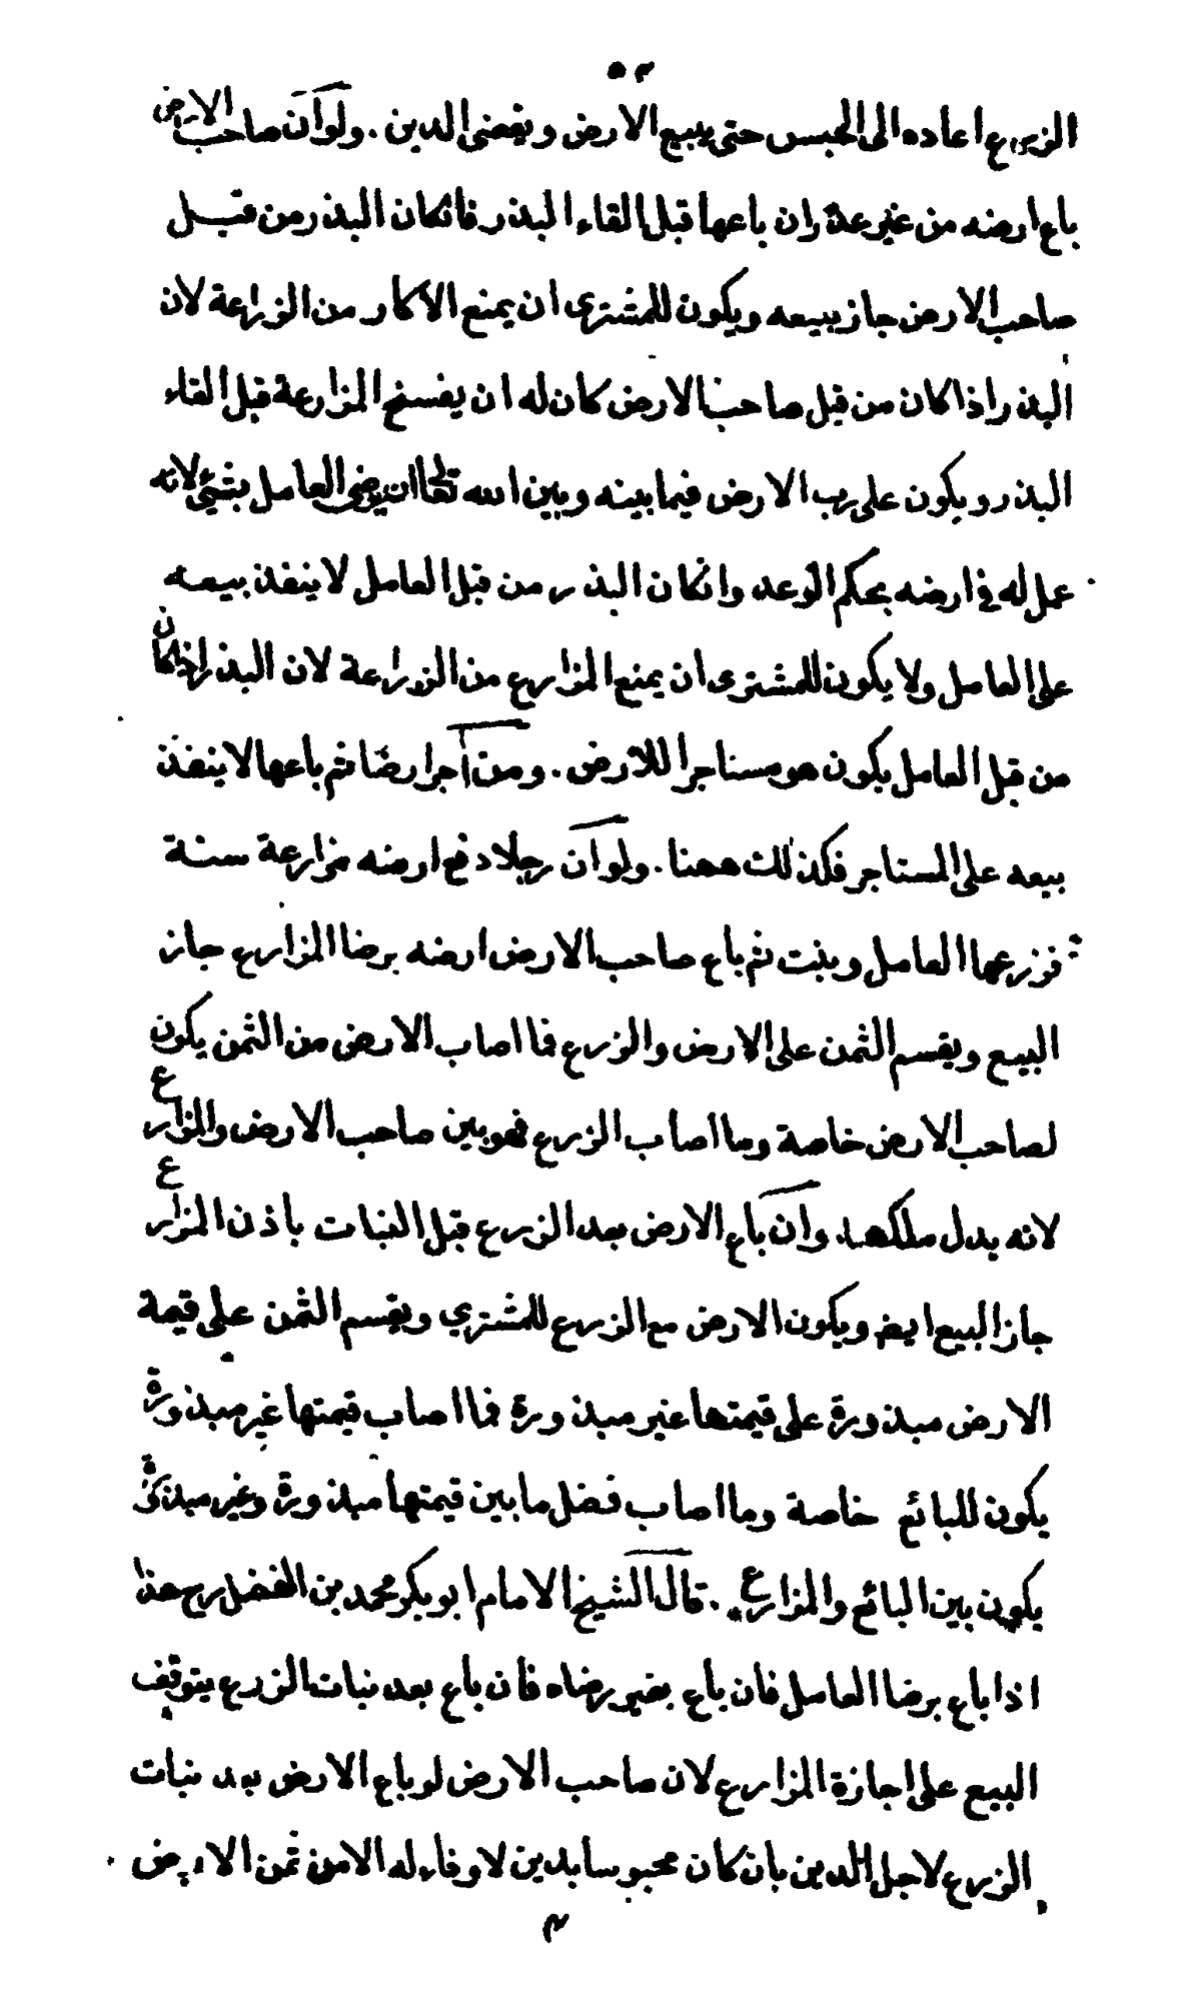 ٥٣
الزرع اعاده الى الحبس حتى يبيع الارض ويقضى الدين . ولو ان صاحب الارض
باع ارضه من غير عذر ان باعها قبل القاء البذر فانكان البذر من قبل
صاحب الارض جاز بيعه ويكون للمشترى ان يمنع الاكار من الزراعة لان
البذر اذا كان من قبل صاحب الارض كان له ان يفسخ المزارعة قبل القاء
البذر ويكون على رب الارض فيما بينه وبين الله تعالى ان يرضى العامل بشئ لانه
عمل له فى ارضه بحكم الوعد وانكان البذر من قبل العامل لا ينفذ بيعه
على العامل ولا يكون للمشترى ان يمنع المزارع من الزراعة لان البذر اذا كان
من قبل العامل يكون هو مستاجرا للارض . ومن آجر ارضا ثم باعها لا ينفذ
بيعه على المستاجر فكذلك ههنا . ولو ان رجلا دفع ارضه مزارعة سنة
فزرعها العامل ونبت ثم باع صاحب الارض ارضه برضا المزارع جاز
البيع ويقسم الثمن على الارض والزرع فما اصاب الارض من الثمن يكون
لصاحب الارض خاصة وما اصاب الزرع فهو بين صاحب الارض والمزارع
لانه بدل ملكهما . وان باع الارض بعد الزرع قبل النبات باذن المزارع
جاز البيع ايضا ويكون الارض مع الزرع للمشتري ويقسم الثمن على قيمة
الارض مبذورة على قيمتها غير مبذورة فما اصاب قيمتها غير مبذورة
يكون للبائع خاصة وما اصاب فضل ما بين قيمتها مبذورة وغير مبذورة
يكون بين البائع والمزارع . قال الشيخ الامام ابو بكر محمد بن الفضل رح هذا
اذا باع برضا العامل فان باع بغير رضاه فان باع بعد نبات الزرع يتوقف
البيع على اجازة المزارع لان صاحب الارض لو باع الارض بعد نبات
الزرع لاجل الدين بان كان محبوسا بدين لا وفاء له الا من ثمن الارض